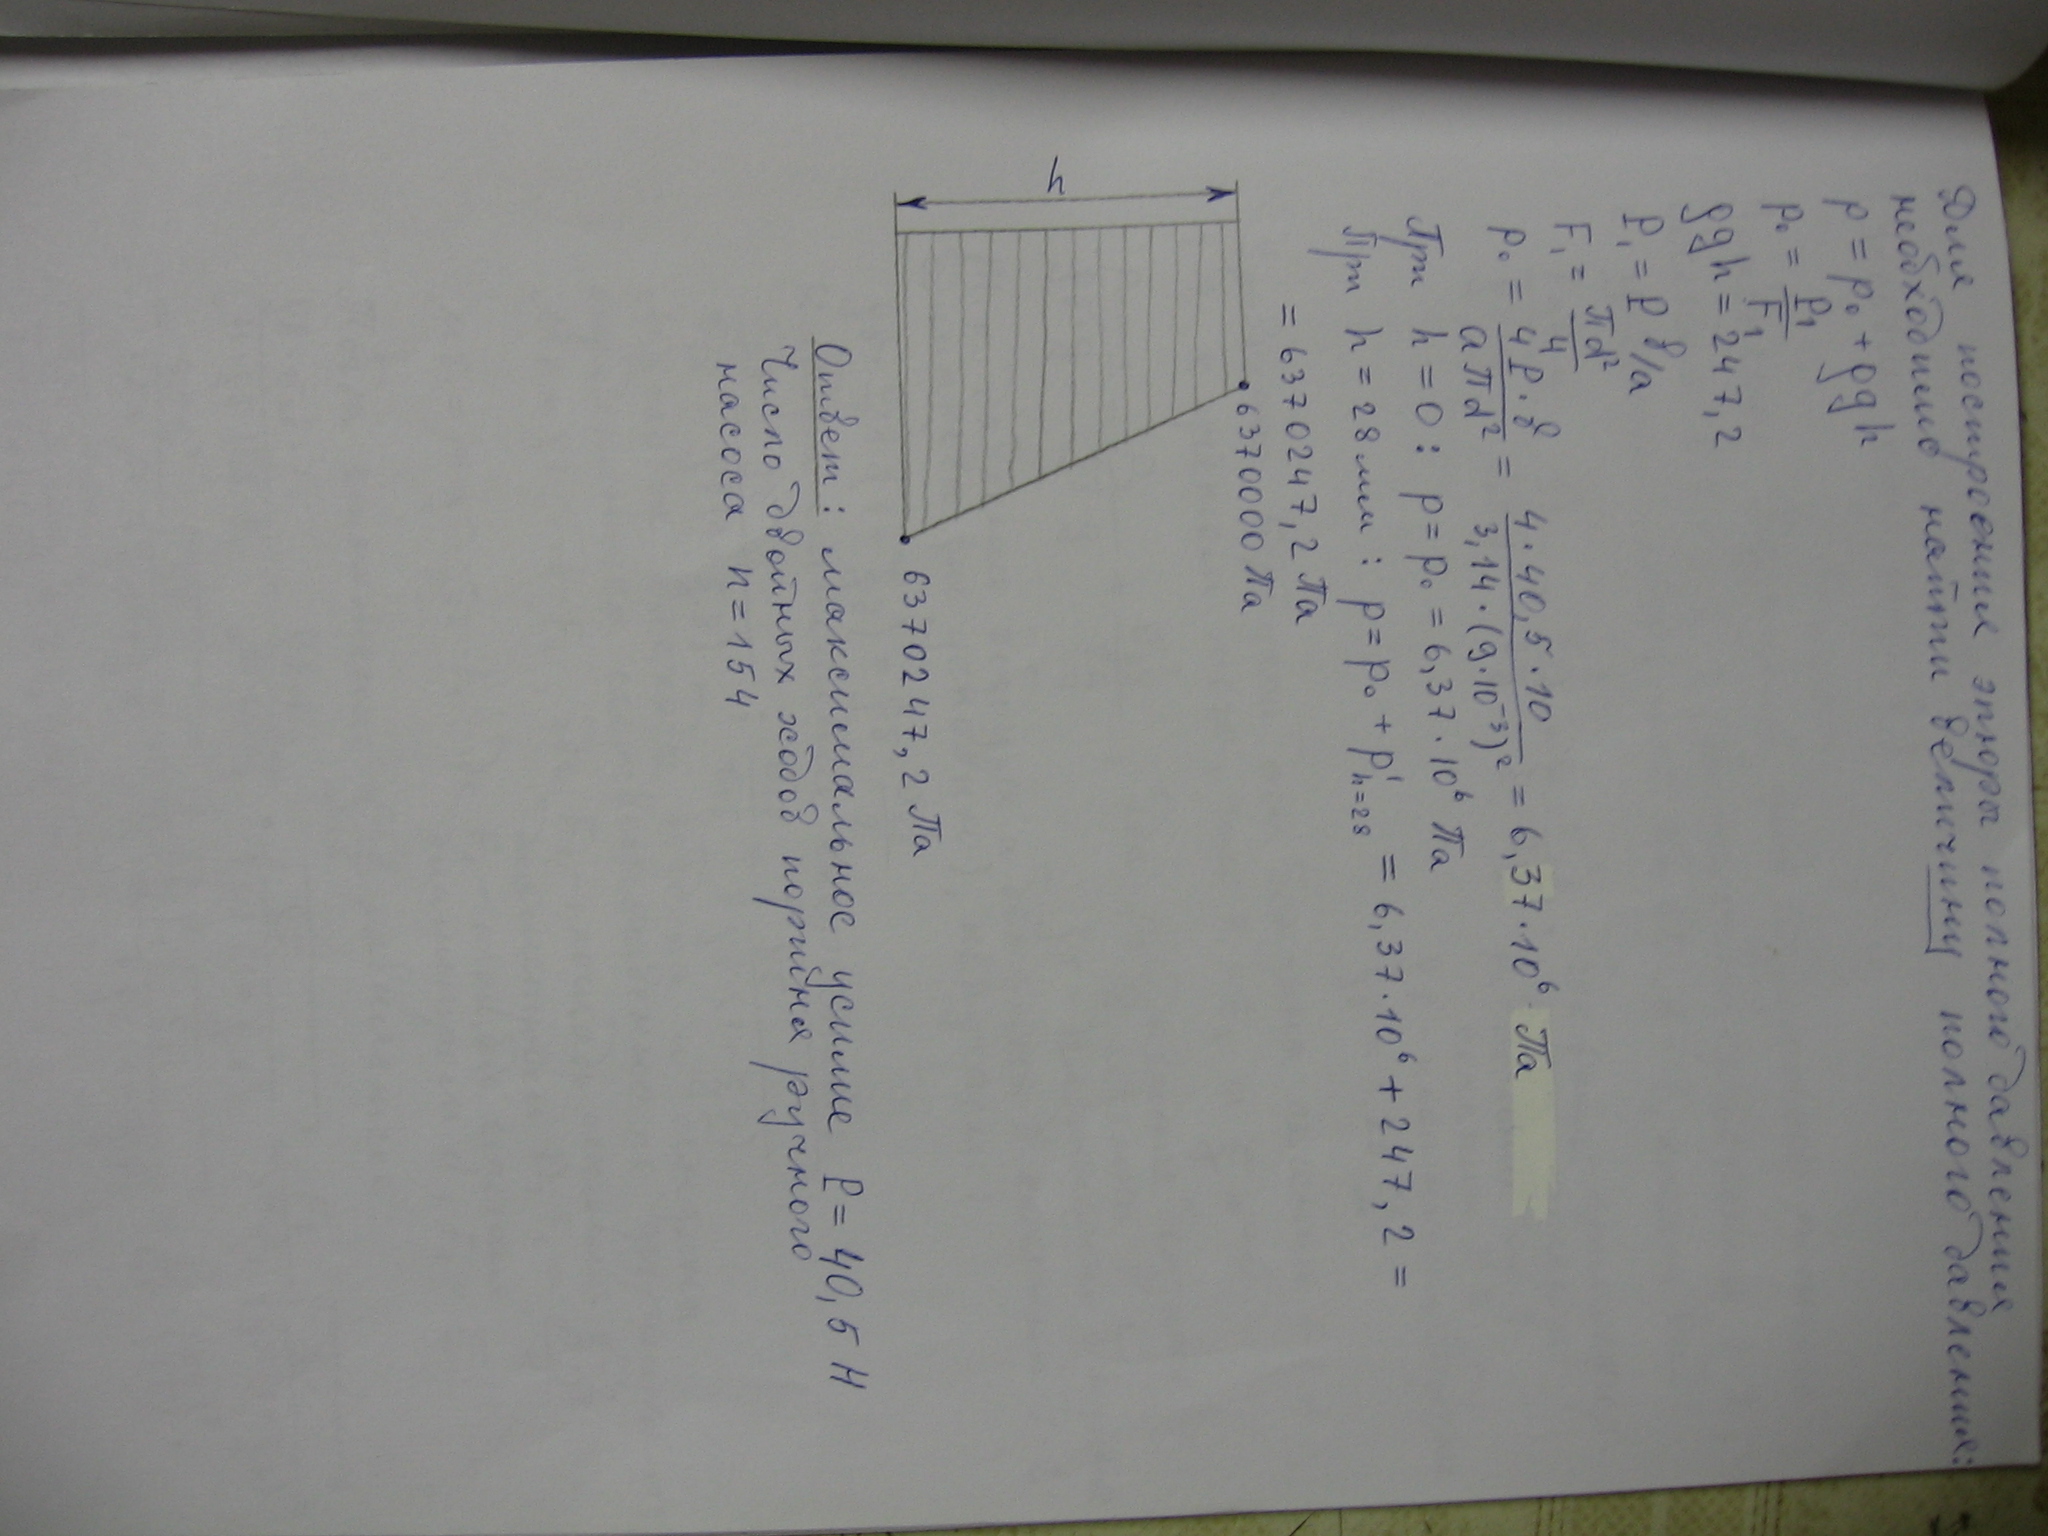 Для построения эпюры полного давления
необходимо найти величины полного давления:
p = p₀ + ρgh
p₀ = P₁/F₁
ρgh = 247,2
P₁ = P в/а
F₁ = πd²/4
p₀ = 4P·в/aπd² = 4·40,5·10/3,14·(9·10⁻³)² = 6,37·10⁶ Па
При h = 0: p = p₀ = 6,37·10⁶ Па
При h = 28 мм: p = p₀ + p'ₕ₌₂₈ = 6,37·10⁶ + 247,2 =
= 6370247,2 Па
6370000 Па
h
6370247,2 Па
Ответ: максимальное усилие P = 40,5 Н
Число двойных ходов поршня ручного
насоса n = 154